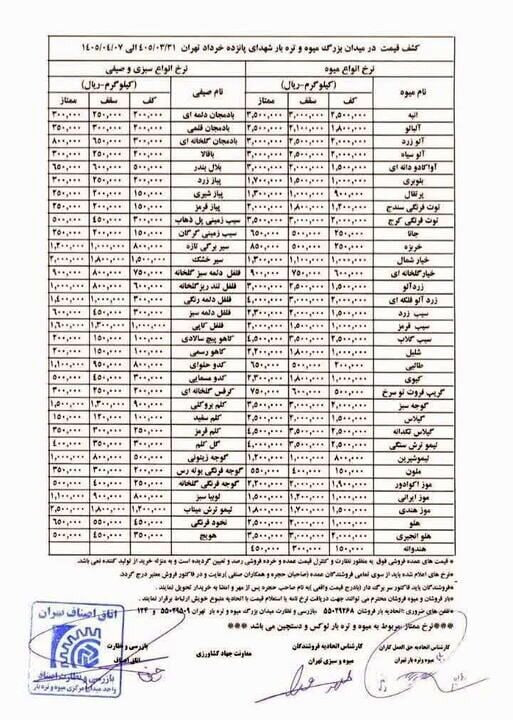 کشف قیمت در میدان بزرگ میوه و تره بار شهدای پانزده خرداد تهران ۱۴۰۵/۰۳/۳۱ الی ۱۴۰۵/۰۴/۰۷
نرخ انواع میوه نرخ انواع سبزی و صیفی
نام میوه (کیلوگرم-ریال) نام صیفی (کیلوگرم-ریال)
کف سقف ممتاز کف سقف ممتاز
انبه ۲,۵۰۰,۰۰۰ ۳,۰۰۰,۰۰۰ ۳,۵۰۰,۰۰۰ بادمجان دلمه ای ۲۰۰,۰۰۰ ۲۵۰,۰۰۰ ۳۰۰,۰۰۰
آلبالو ۱,۸۰۰,۰۰۰ ۲,۱۰۰,۰۰۰ ۲,۵۰۰,۰۰۰ بادمجان قلمی ۲۰۰,۰۰۰ ۳۰۰,۰۰۰ ۳۵۰,۰۰۰
آلو زرد ۲,۰۰۰,۰۰۰ بادمجان گلخانه ای ۳۰۰,۰۰۰ ۶۵۰,۰۰۰ ۸۰۰,۰۰۰
آلو سیاه باقالا ۲۰۰,۰۰۰ ۲۵۰,۰۰۰
آواکادو دانه ای بلال بندر ۶۰۰,۰۰۰ ۶۵۰,۰۰۰
بلوبری ۱,۵۰۰,۰۰۰ ۱,۷۰۰,۰۰۰ پیاز زرد ۲۵۰,۰۰۰ ۳۰۰,۰۰۰
پرتقال ۹۰۰,۰۰۰ ۱,۰۰۰,۰۰۰ ۱,۳۰۰,۰۰۰ پیاز شیری ۱۵۰,۰۰۰ ۲۰۰,۰۰۰ ۲۵۰,۰۰۰
توت فرنگی سنندج ۱,۲۰۰,۰۰۰ ۱,۸۰۰,۰۰۰ ۲,۰۰۰,۰۰۰ پیاز قرمز ۱۵۰,۰۰۰ ۲۰۰,۰۰۰ ۲۵۰,۰۰۰
توت فرنگی کرج ۲,۰۰۰,۰۰۰ ۳,۰۰۰,۰۰۰ ۳,۵۰۰,۰۰۰ سیب زمینی پل ذهاب ۳۰۰,۰۰۰ ۴۵۰,۰۰۰ ۵۰۰,۰۰۰
جانا ۲۵۰,۰۰۰ ۵۰۰,۰۰۰ ۶۵۰,۰۰۰ سیب زمینی گرگان ۱۵۰,۰۰۰ ۲۰۰,۰۰۰ ۲۵۰,۰۰۰
خربزه ۲۵۰,۰۰۰ ۵۰۰,۰۰۰ ۸۵۰,۰۰۰ سیر برگی تازه ۸۰۰,۰۰۰ ۱,۰۰۰,۰۰۰ ۱,۲۰۰,۰۰۰
خیار شمال ۱,۰۰۰,۰۰۰ ۱,۱۰۰,۰۰۰ ۱,۳۰۰,۰۰۰ سیر خشک ۱,۵۰۰,۰۰۰ ۱,۸۰۰,۰۰۰ ۲,۰۰۰,۰۰۰
خیارگلخانه ای ۶۰۰,۰۰۰ ۷۵۰,۰۰۰ ۹۰۰,۰۰۰ فلفل دلمه سبز گلخانه ۷۵۰,۰۰۰ ۸۰۰,۰۰۰ ۹۰۰,۰۰۰
زردآلو ۲,۰۰۰,۰۰۰ فلفل تند ریزگلخانه ۶۰۰,۰۰۰ ۸۰۰,۰۰۰ ۱,۰۰۰,۰۰۰
زرد آلو فلکه ای ۲,۵۰۰,۰۰۰ فلفل دلمه رنگی ۱,۰۰۰,۰۰۰ ۱,۴۰۰,۰۰۰
سیب زرد ۱,۵۰۰,۰۰۰ ۲,۰۰۰,۰۰۰ ۲,۳۰۰,۰۰۰ فلفل دلمه سبز ۳۰۰,۰۰۰ ۴۵۰,۰۰۰ ۶۰۰,۰۰۰
سیب قرمز ۱,۰۰۰,۰۰۰ ۱,۵۰۰,۰۰۰ ۲,۰۰۰,۰۰۰ فلفل کاپی ۱,۰۰۰,۰۰۰ ۱,۳۰۰,۰۰۰ ۱,۶۰۰,۰۰۰
سیب گلاب ۲,۵۰۰,۰۰۰ ۳,۵۰۰,۰۰۰ ۴,۵۰۰,۰۰۰ کاهو پیچ سالادی ۱۵۰,۰۰۰ ۲۰۰,۰۰۰
شلیل ۱,۰۰۰,۰۰۰ ۱,۸۰۰,۰۰۰ ۲,۲۰۰,۰۰۰ کاهو رسمی ۱۵۰,۰۰۰ ۲۰۰,۰۰۰
طالبی ۲۰۰,۰۰۰ ۵۰۰,۰۰۰ ۶۵۰,۰۰۰ کدو حلوای ۸۰۰,۰۰۰ ۹۵۰,۰۰۰ ۱,۱۰۰,۰۰۰
کیوی ۱,۰۰۰,۰۰۰ ۱,۸۰۰,۰۰۰ ۲,۳۰۰,۰۰۰ کدو مسمایی ۳۰۰,۰۰۰ ۴۵۰,۰۰۰ ۵۰۰,۰۰۰
گریپ فروت تو سرخ ۵۰۰,۰۰۰ ۶۰۰,۰۰۰ ۷۵۰,۰۰۰ کرفس گلخانه ای ۲۰۰,۰۰۰ ۳۰۰,۰۰۰
گوجه سبز ۲,۰۰۰,۰۰۰ ۳,۰۰۰,۰۰۰ ۳,۵۰۰,۰۰۰ کلم بروکلی ۹۰۰,۰۰۰ ۱,۳۰۰,۰۰۰ ۱,۵۰۰,۰۰۰
گیلاس ۱,۵۰۰,۰۰۰ ۲,۰۰۰,۰۰۰ ۲,۵۰۰,۰۰۰ کلم سفید ۱۰۰,۰۰۰ ۱۲۰,۰۰۰ ۱۵۰,۰۰۰
گیلاس تکدانه ۲,۵۰۰,۰۰۰ کلم قرمز ۲۵۰,۰۰۰ ۳۰۰,۰۰۰ ۳۵۰,۰۰۰
لیمو ترش سنگی ۲,۵۰۰,۰۰۰ ۳,۵۰۰,۰۰۰ ۴,۰۰۰,۰۰۰ گل کلم ۳۰۰,۰۰۰ ۳۵۰,۰۰۰ ۴۰۰,۰۰۰
لیموشیرین ۸۰۰,۰۰۰ ۱,۰۰۰,۰۰۰ ۱,۲۰۰,۰۰۰ گوجه زیتونی ۵۰۰,۰۰۰ ۸۰۰,۰۰۰ ۱,۰۰۰,۰۰۰
ملون ۱۵۰,۰۰۰ ۴۰۰,۰۰۰ ۵۵۰,۰۰۰ گوجه فرنگی بوته رس ۲۰۰,۰۰۰ ۳۰۰,۰۰۰ ۳۵۰,۰۰۰
موز اکوادور ۱,۹۰۰,۰۰۰ ۲,۰۰۰,۰۰۰ گوجه فرنگی گلخانه ۲۵۰,۰۰۰ ۴۰۰,۰۰۰ ۵۰۰,۰۰۰
موز ایرانی ۱,۰۰۰,۰۰۰ ۱,۲۰۰,۰۰۰ ۱,۵۰۰,۰۰۰ لوبیا سبز ۸۰۰,۰۰۰ ۹۰۰,۰۰۰ ۱,۱۰۰,۰۰۰
موز هندی ۱,۵۰۰,۰۰۰ ۱,۷۰۰,۰۰۰ ۱,۸۰۰,۰۰۰ لیمو ترش میناب ۱,۲۰۰,۰۰۰ ۱,۸۰۰,۰۰۰ ۲,۰۰۰,۰۰۰
هلو ۱,۰۰۰,۰۰۰ ۲,۰۰۰,۰۰۰ ۲,۵۰۰,۰۰۰ نخود فرنگی ۴۵۰,۰۰۰ ۵۵۰,۰۰۰ ۶۵۰,۰۰۰
هلو انجیری ۲,۰۰۰,۰۰۰ ۳,۰۰۰,۰۰۰ هویج ۳۰۰,۰۰۰ ۴۵۰,۰۰۰ ۵۰۰,۰۰۰
هندوانه ۱۵۰,۰۰۰ ۳۰۰,۰۰۰ ۴۵۰,۰۰۰
* قیمت های عمده فروشی فوق به منظور نظارت و کنترل قیمت عمده و خرده فروشی رصد و تعیین گردیده است و به منزله خرید از تولید کننده نمی باشد.
*نرخ های اعلام شده باید از سوی تمامی فروشندگان عمده (صاحبان حجره و همکاران صنفی) رعایت و در فاکتور فروش معتبر درج گردد.
*فروشندگان باید فاکتور سربرگ دار (بادرج قیمت واقعی) به نام صاحب حجره پس از مهر و امضا به خریدار تحویل نمایند.
*تره بار فروشان و میوه فروشان محترم می توانند جهت دریافت نرخ نامه یا استعلام قیمت با اتحادیه متبوع خویش ارتباط برقرار نمایند.
*تلفن های ضروری: اتحادیه بار فروشان ۵۵۰۲۹۲۶۸ بازرسی و نظارت میدان بزرگ میوه و تره بار تهران ۵۵۰۲۹۵۰۹ و ۱۲۴
*نرخ ممتاز مربوط به میوه و تره بار لوکس و دستچین می باشد.
کارشناس اتحادیه حق العمل کاران کارشناس اتحادیه فروشندگان معاونت جهاد کشاورزی بازرسی و نظارت
میوه و تره بار تهران میوه و سبزی تهران اتاق اصناف
اتاق اصناف تهران
بازرسی و نظارت اصناف
واحد میدان مرکزی میوه و تره بار